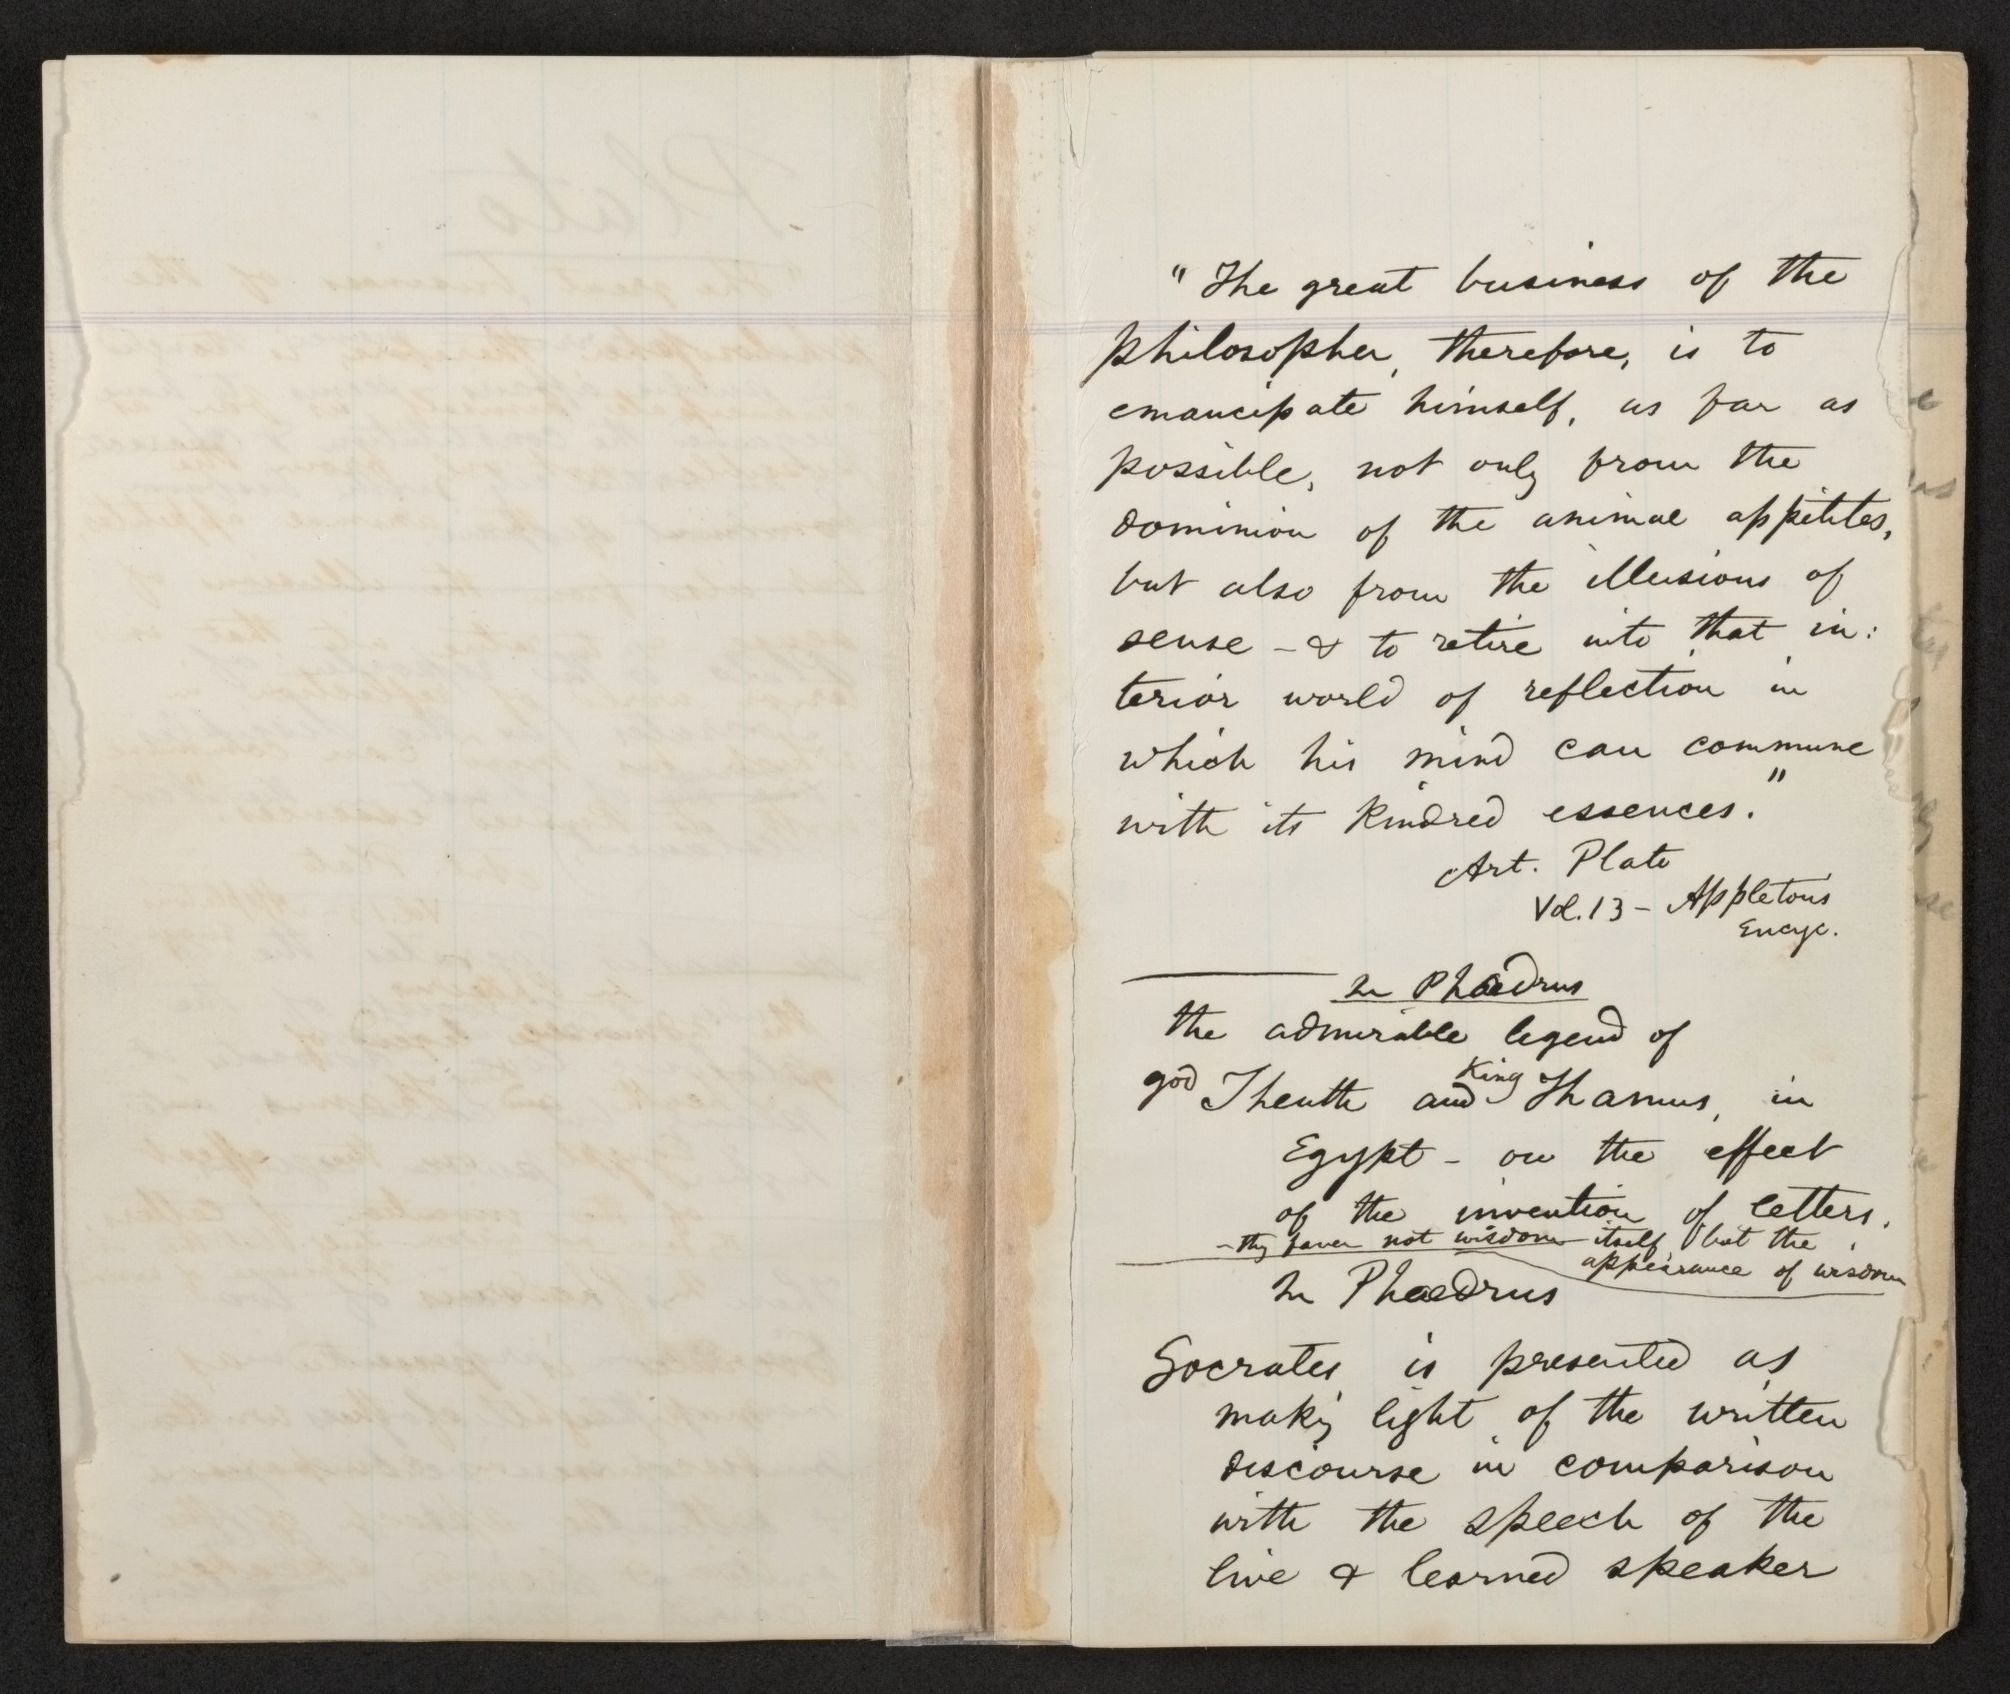 "The great business of the
philosopher, therefore, is to
emancipate himself, as far as
possible, not only from the
dominion of the animal appetites,
but also from the illusions of
sense - & to retire into that in:
terior world of reflection in
which his mind can commune
with its kindred essences."
Art. Plato
Vol. 13 - Appletons
Encyc.
In Phaedrus
the admirable legend of
god Theuth and King Thamus, in
Egypt - on the effect
of the invention of letters.
- they favor not wisdom itself, but the
appearance of wisdom
In Phaedrus
Socrates is presented as
making light of the written
discourse in comparison
with the speech of the
live & learned speaker